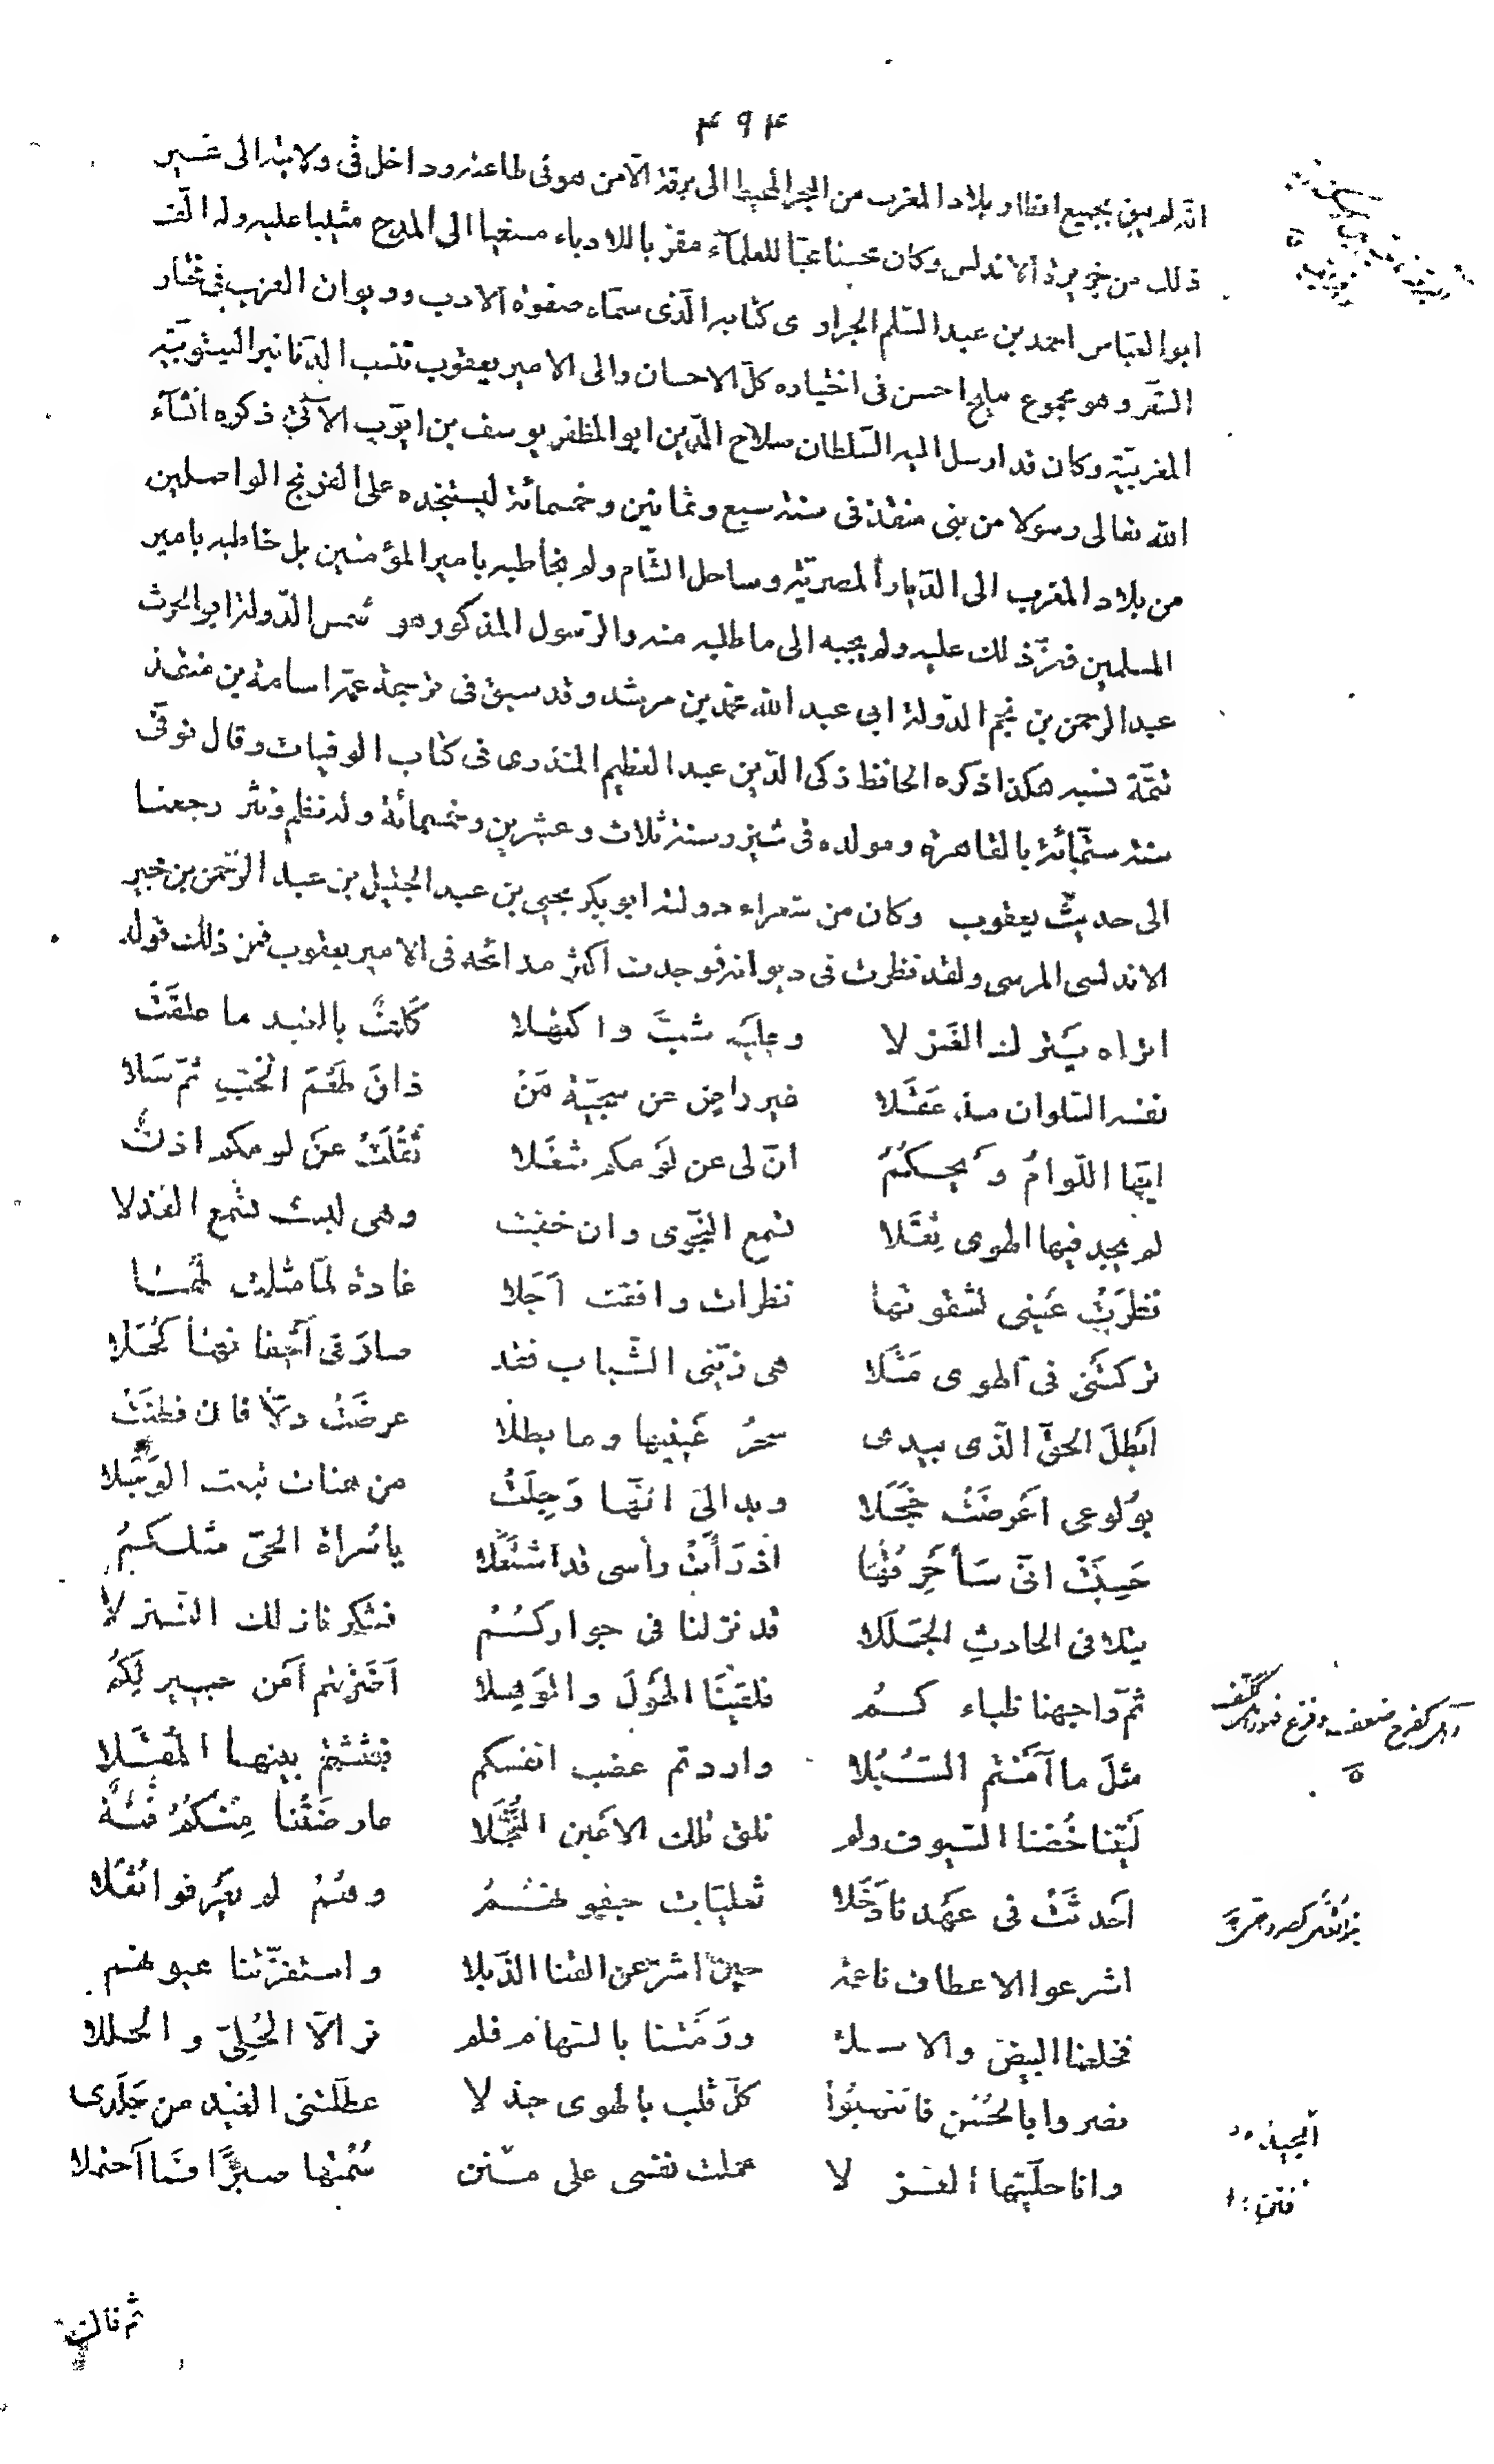 ۴۹۴
انه لم يبق بجميع اقطار بلاد المغرب من البحر المحيط الى برقة الا من هو فى طاعته وداخل فى ولايته الى غير
ذلك من جزيرة الاندلس وكان محسنا محبا للعلماء مقربا للادباء مصغيا الى المدح مثيبا عليه وله الف
ابو العباس احمد بن عبد السلم الجراوى كتابه الذى سماه صفوة الادب وديوان العرب فى مختار
الشعر وهو مجموع مليح احسن فى اختياره كل الاحسان والى الامير يعقوب تنسب الدنانير اليعقوبية
المغربية وكان قد ارسل اليه السلطان صلاح الدين ابو المظفر يوسف بن ايوب الآتى ذكره انشآء
الله تعالى رسولا من بنى منقذ فى سنة سبع وثمانين وخمسمائة ليستنجده على الفرنج الواصلين
من بلاد المغرب الى الديار المصرية وساحل الشام ولم يخاطبه بامير المؤمنين بل خاطبه بامير
المسلمين فعزّ ذلك عليه ولم يجبه الى ما طلبه منه والرسول المذكور هو شمس الدولة ابو الحرث
عبد الرحمن بن نجم الدولة ابى عبد الله محمد بن مرشد وقد سبق فى ترجمة عمه اسامة بن منقذ
تتمّة نسبه هكذا ذكره الحافظ زكى الدين عبد العظيم المنذرى فى كتاب الوفيات وقال توفى
سنة ستمائة بالقاهرة ومولده فى شيزر سنة ثلاث وعشرين وخمسمائة وله نظم ونثر رجعنا
الى حديث يعقوب وكان من شعراء دولته ابو بكر يحيى بن عبد الجليل بن عبد الرحمن بن مجبر
الاندلسى المرسى ولقد نظرت فى ديوانه فوجدت اكثر مدائحه فى الامير يعقوب فمن ذلك قوله
اتراه يترك الغزلا وعليه شبّ واكتهلا كلفٌ بالغيد ما علقت
نفسه السلوان مذ عقلا غير راض عن سجيّة من ذاق طعم الحبّ ثمّ سلا
ايّها اللّوام ويحكم انّ لى عن لومكم شغلا ثقلت عن لومكم اذنٌ
لم يجد فيها الهوى ثقلا تسمع النجوى وان خفيت وهى ليست تسمع العذلا
نظرت عينى لشقوتها نظرات وافقت اجلا غادة لمّا مثلت لها
تركتنى فى الهوى مثلا هى بزّتنى الشّباب فقد صار فى اجفانها كحلا
ابطل الحقّ الذى بيدى سحر عينيها وما بطلا عرضت دلّا فان فطنت
بولوعى اعرضت خجلا وبدا لى انّها وجلت من هنات تبعث الوجلا
حسبت انّى سأحرقها اذ رأت رأسى قد اشتعلا يا سراة الحىّ مثلكم
يتلافى الحادث الجللا قد نزلنا فى جواركم فشكرنا ذلك النزلا
ثمّ واجهنا ظباءكم فلقينا الهول والوهلا اضمنتم امن جيرتكم
مثل ما آمنتم السّبلا واردتم غصب انفسكم فبثثتم بينها المقلا
ليتنا خضنا السّيوف ولم نلق تلك الاعين النّجلا عارضتنا منكم فئة
احدثت فى عهدنا دخلا ثعليّات جفونهم وهم لم يعرفوا ثعلا
اشرعوا الاعطاف ناعمة حين اشرعن القنا الذّبلا واستفزّتنا عيونهم
فخلعنا البيض والاسلا ورمتنا بالسّهام فلم نر الّا الحلىّ والحللا
نصروا بالحسن فانتهبوا كلّ قلب بالهوى جذلا عطلتنى الغيد من جلدى
وانا حلّيتها الغزلا حملت نفسى على فتن سمتها صبرًا فما احتملا
الجيد
فتن
ثم قالت